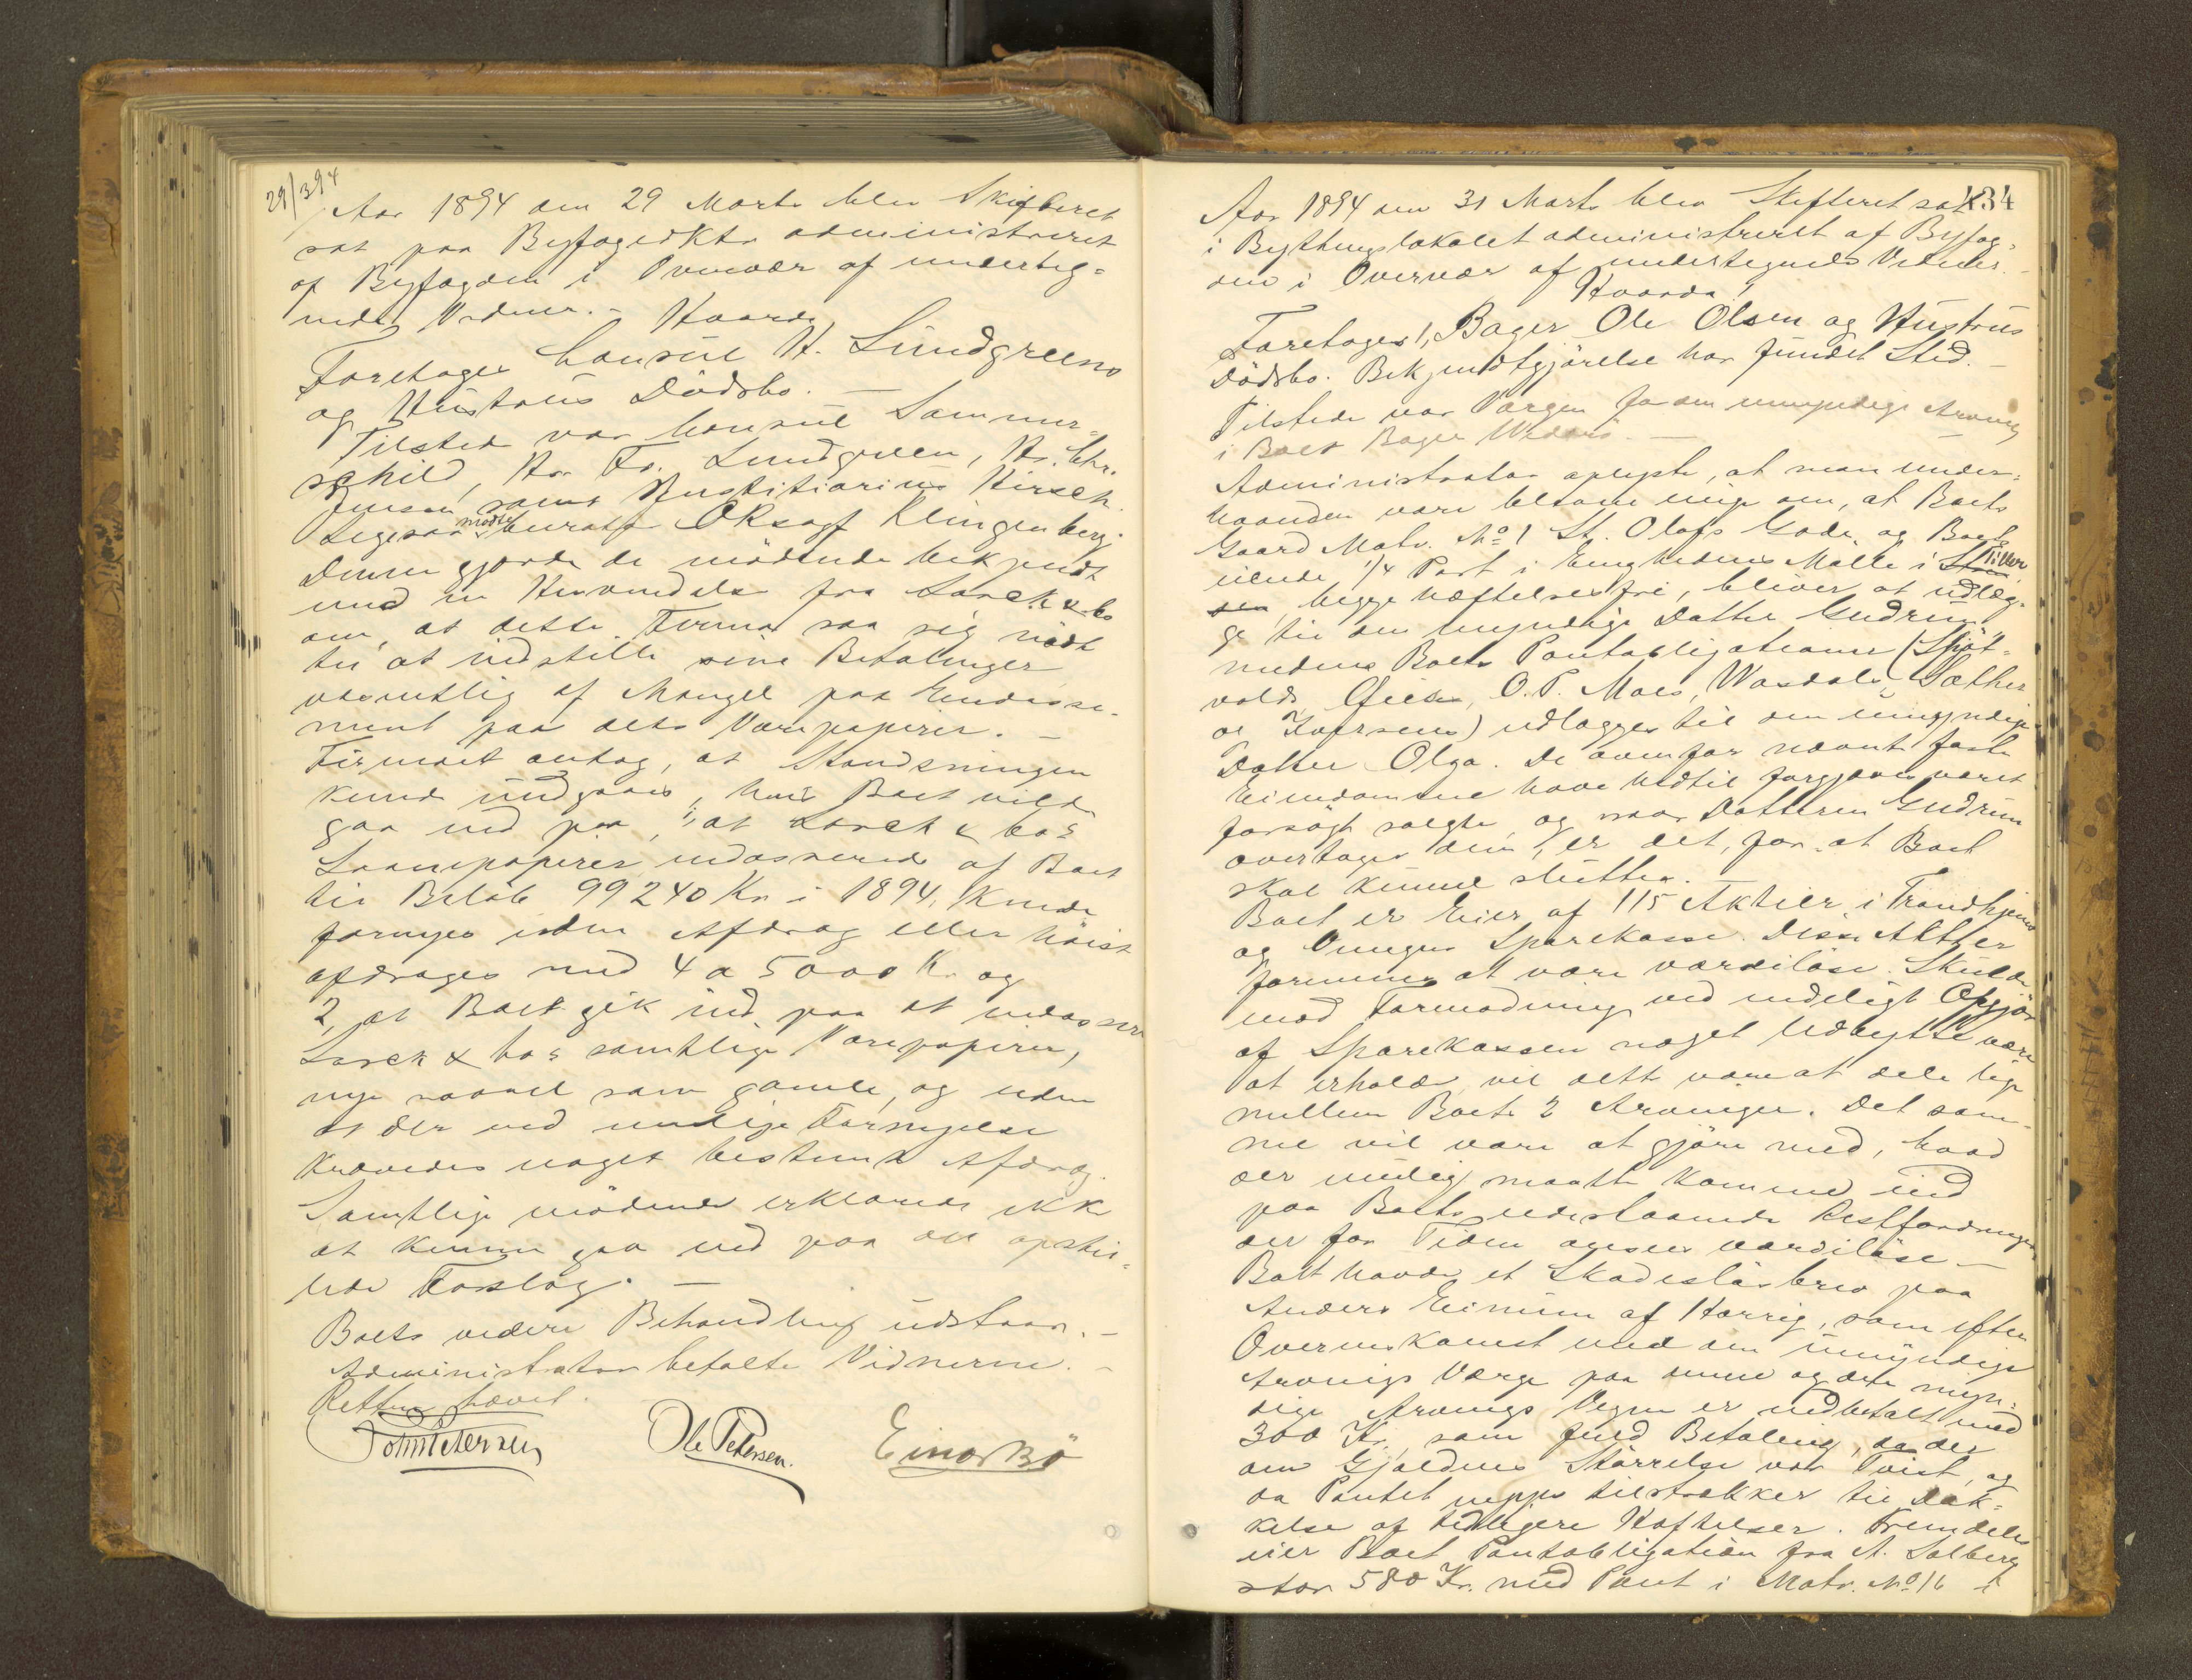 29/3 94
Aar 1894 den 29 Marts blev Skifteret
sat paa Byfogedktr administreret
af Byfogden i Overvær af underteg-
nede Vidner. - Hvorda
Foretoges Consul H. Lundgreens
og Hustrus Dödsbo. —
Tilstede var Consul Sommer-
schild, Hr. Fr. Lundgreen, Hr. Chr.
Jensen samt Justitiarius Hirsch.
Ligesaa mødte Curator ORsagf Klingenberg.
Denne gjorde de mödende bekjendt
med en Henvendelse fra Lorck & Co
om, at dette Firma saa sig nödt
til at indstille sine Betalinger
væsentlig af Mangel paa Endosse-
ment paa dets Varepapirer. —
Firmaet antog, at Standsningen
kunde undgaaes, hvis Boet vilde
gaa ind paa, 1, at Lorck & Co's
Laanepapirer endosserede af Boet
til Beløb 99240 Kr i 1894, kunde
fornyes uden Afdrag eller höist
afdrages med 4 a 5000 Kr og
2, at Boet gik ind paa at endossere
Lorck & Co's samtlige Varepapirer,
nye saavel som gamle, og uden
at der ved mulige Fornyelse
krævedes noget bestemt Afdrag.
Samtlige mödende erklærede ikke
at kunne gaa ind paa det opstil-
lede Forslag. —
Boets videre Behandling udstaar. -
Administrator betalte Vidnerne. -
Retten hævet.
John Petersen Ole Petersen. Einar Bö
434
Aar 1894 den 31 Marts blev Skifteret sat
i Bythingslokalet administreret af Byfog-
den i Overvær af undertegnede Vidner. -
Hvorda!
Foretoges 1, Bager Ole Olsen og Hustrus
Dödsbo. Bekjendtgjörelse har fundet Sted. -
Tilstede var Værgen for den umyndige Arving
i Boet Bager
Administrator oplyste, at man under-
haanden var bleven enige om, at Boets
Gaard Matr. No 1 St. Olafs Gade og Boets
eiende 1/4 Part i Enighedens Mølle i Tiller
begge hæftelsesfri, bliver at udlæg-
ge til den myndige Datter Gudrun
medens Boets Pantobligationer (Skjöt-
vold, O. P. Moes, Wasdals, Sæther
og Iversens) udlægges til den umyndige
Datter Olga. De ovenfor nævnte faste
Eiendomme have hidtil forgjæves været
forsögt solgte, og naar Datteren Gudrun
overtager dem, er det, for at Boet
skal kunne sluttes.
Boet er Eier af 115 Aktier i Trondhjems
og Omegns Sparekasse. Disse Aktier
formenes at være værdilöse. Skulde
mod Formodning ved endeligt Opgjör
af Sparekassen noget Udbytte være
at erholde, vil dette være at dele lige
mellem Boets 2 Arvinger. Det sam-
me vil være at gjöre med, hvad
der mulig maatte komme ind
paa Boets udestaaende Restfordringer,
der for Tiden ansees værdilöse —
Boet havde et Skadeslösbrev paa
Anders Eimum af Horrig, som efter
Overenskomst med den umyndige
Arvings Værge paa denne og den myn-
dige Arvings Vegne er indbetalt med
300 Kr, som fuld Betaling, da der
om Gjældens Störrelse var Tvist, og
da Pantet neppe tilstrækker til Dæk-
kelse af tidligere Hæftelser. Fremdeles
eier Boet Pantobligation fra A. Solberg
stor 580 Kr. med Pant i Matr. No 16 i